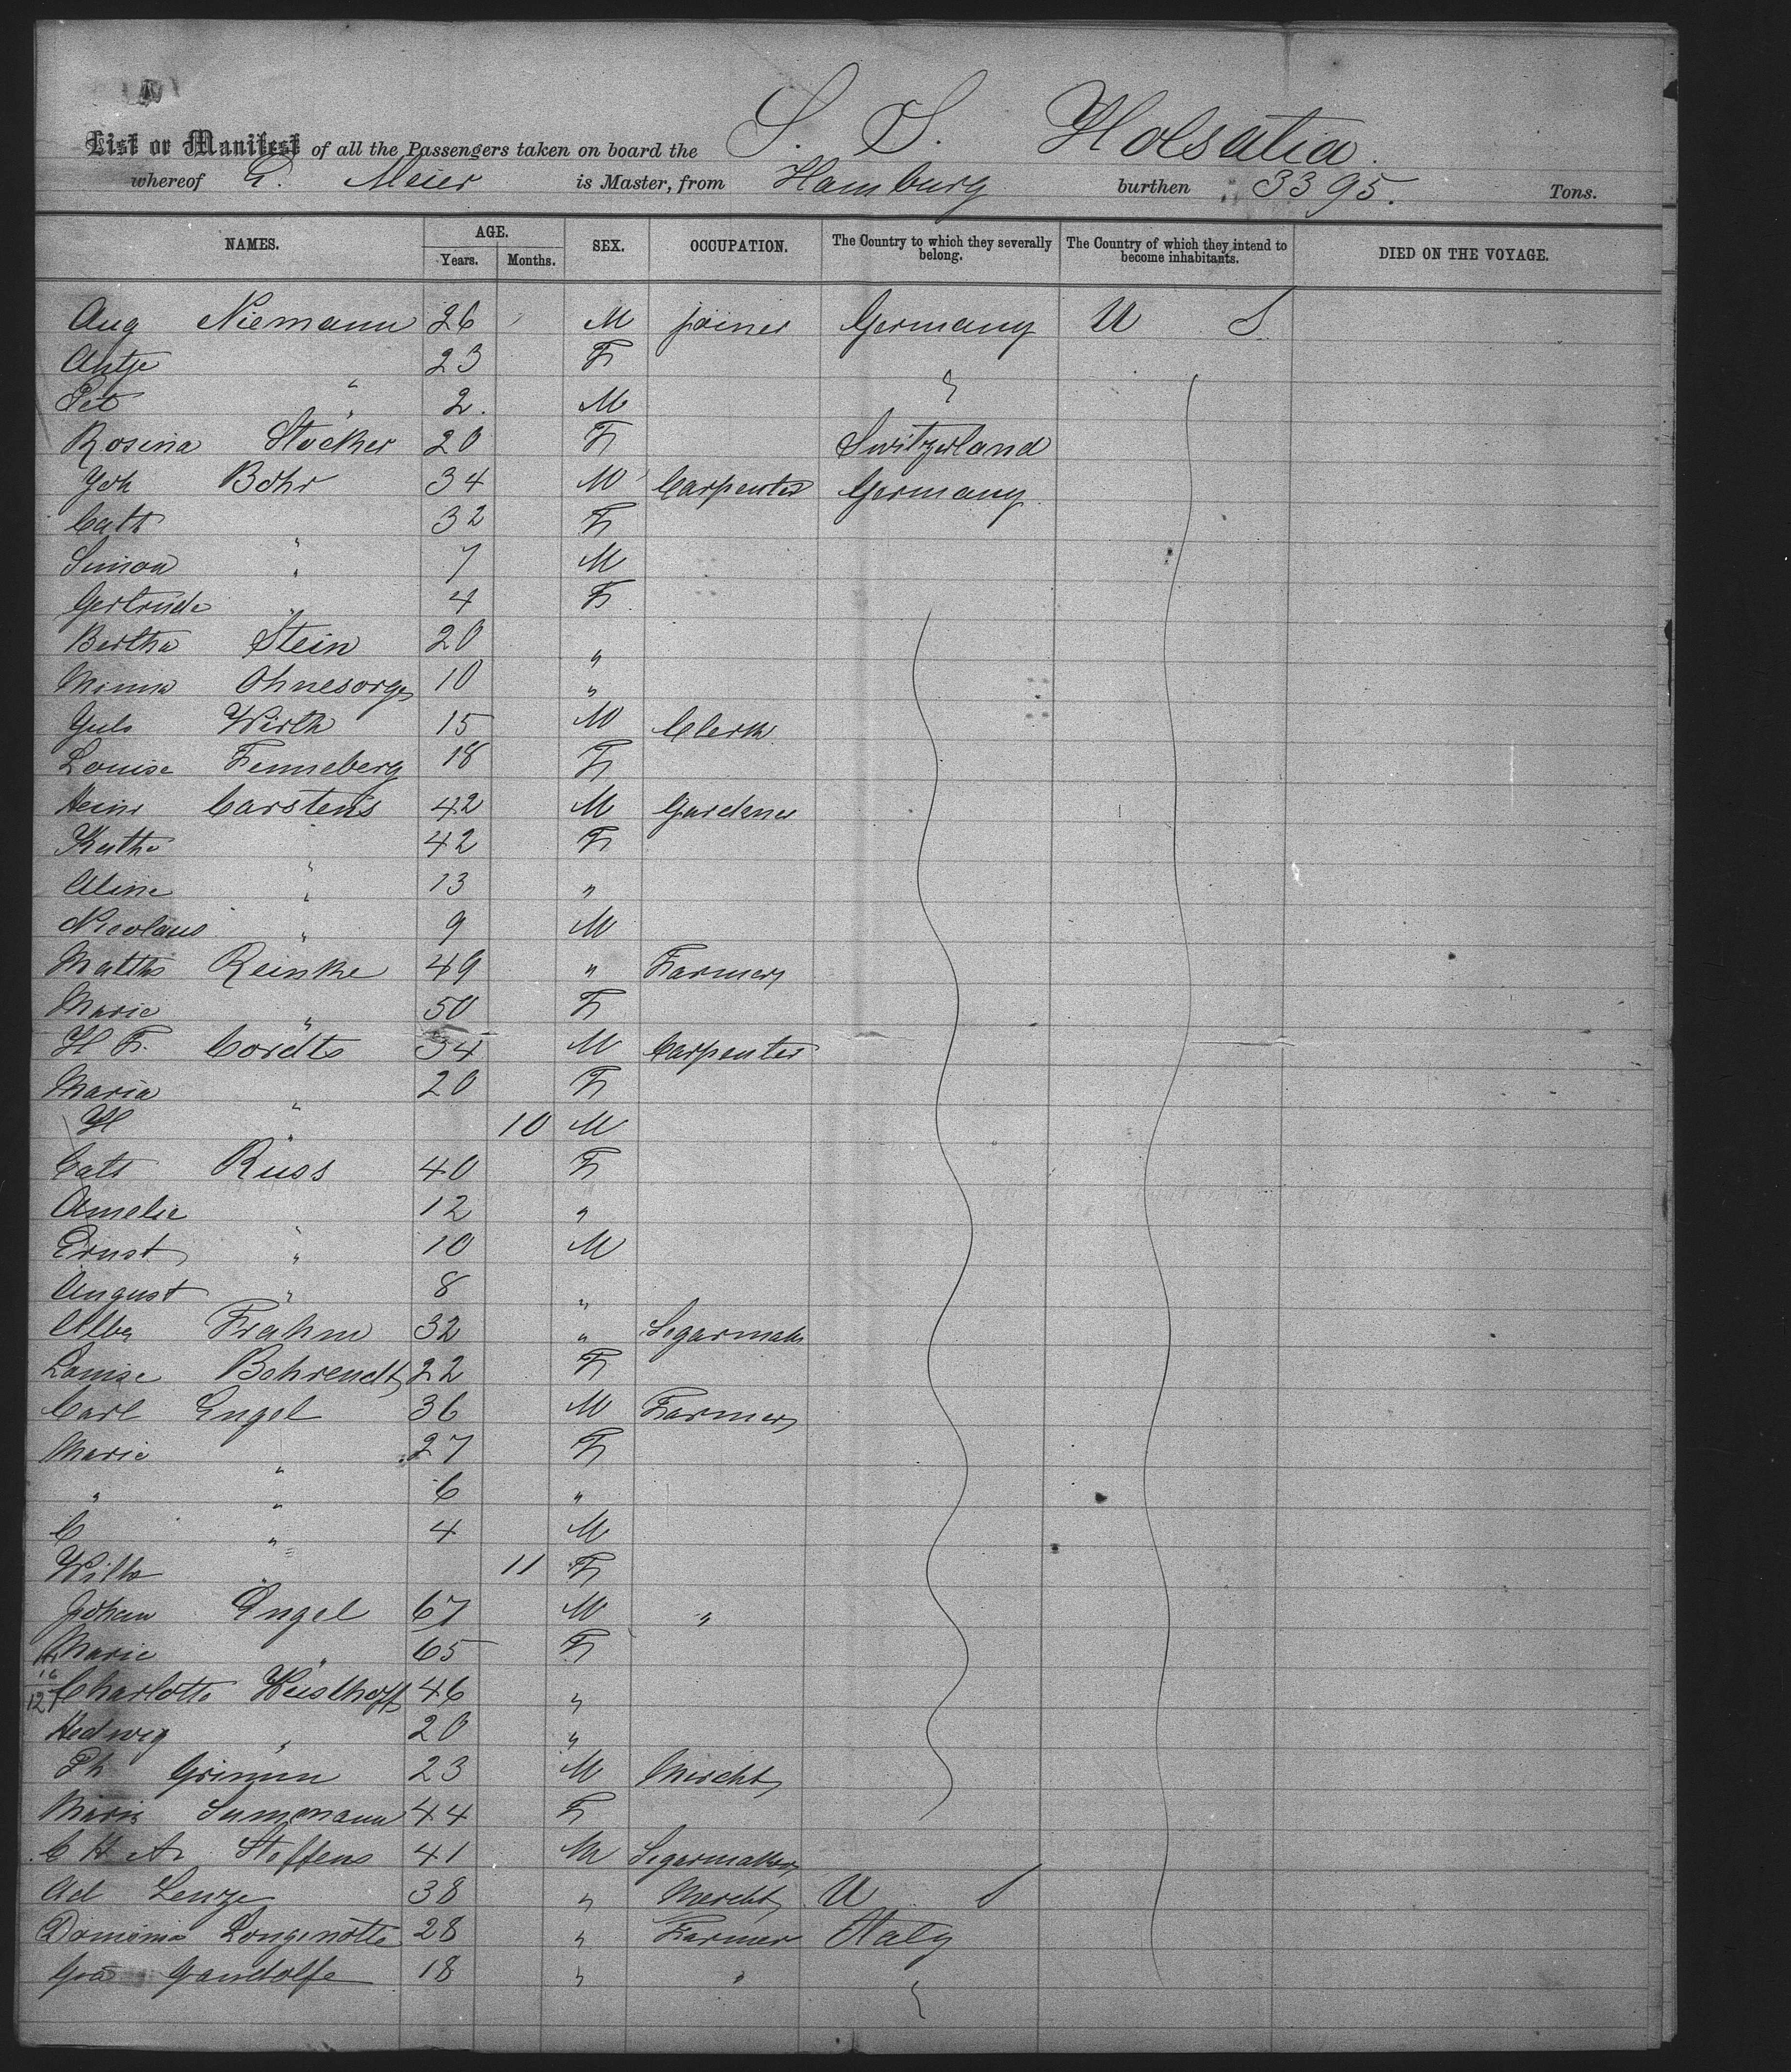 List or Manifest of all the Passengers taken on board the S. S. Holsatia.
whereof E. Meier is Master, from Hamburg burthen 3395. Tons.
NAMES. AGE. Years. Months. SEX. OCCUPATION. The Country to which they severally belong. The Country of which they intend to become inhabitants. DIED ON THE VOYAGE.
Aug Niemann 26 M joiner Germany U S
Antje 23 F
Pet " 2. M "
Rosina Stocker 20 F Switzerland
Joh Bohr 34 M Carpenter Germany
Cath 32 F
Simon " 7 M
Gertrude " 4 F
Bertha Stein 20 "
Minna Ohnesorge 10 "
Juls Wirth 15 M Clerk
Louise Fenneberg 18 F
Heinr Carstens 42 M Gardener
Kathe 42 F
Aline " 13 "
Nicolaus " 9 M
Matths Reinke 49 " Farmer
Marie " 50 F
H F. Cordts 34 M Carpenter
Maria " 20 F
H " 10 M
Cath Russ 40 F
Amelie 12 "
Ernst " 10 M
August " 8 "
Alb Frahm 32 " Segarmakr
Louise Bohrendt 22 F
Carl Engel 36 M Farmer
Marie " 27 F
" " 6 "
C " 4 M
Wilh " 11 F
Johan Engel 67 M "
Marie " 65 F
Charlotte 46 "
Hedwig " 20 "
Ph Grimm 23 M Mercht
Marie 44 F
C H A Steffens 41 M Segarmaker
Ad Lenze 38 " Mercht U S
Longinotte 28 " Farmer Italy
Gandolfe 18 " " "